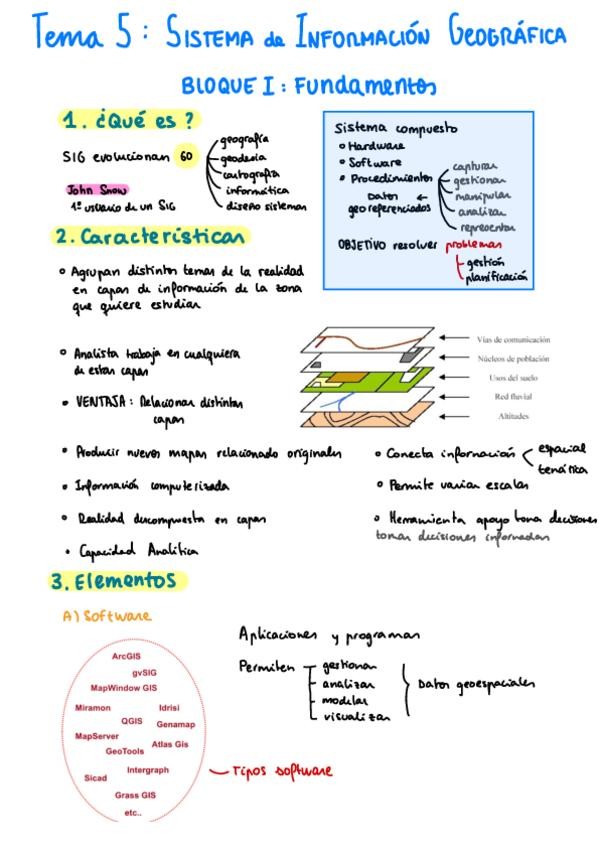 Tema 5: SISTEMA de INFORMACIÓN GEOGRÁFICA
BLOQUE I: Fundamentos
1. ¿Qué es?
SIG evolucionan 60
geografía
geodesia
cartografía
informática
diseño sistemas
John Snow
1º usuario de un SIG
Sistema compuesto
Hardware
Software
Procedimientos
capturar
gestionar
manipular
analizar
representar
Datos ←
georeferenciados
OBJETIVO resolver problemas
gestión
planificación
2. Características
Agrupan distintos temas de la realidad
en capas de información de la zona
que quiere estudiar
Analista trabaja en cualquiera
de estas capas
VENTAJA: Relacionar distintas
capas
Vías de comunicación
Núcleos de población
Usos del suelo
Red fluvial
Altitudes
Producir nuevos mapas relacionado originales
Información computerizada
Realidad descompuesta en capas
Capacidad Analítica
Conecta información
espacial
temática
Permite varias escalas
Herramienta apoyo toma decisiones
tomar decisiones informadas
3. Elementos
A) Software
ArcGIS
gvSIG
MapWindow GIS
Miramon Idrisi
QGIS Genamap
MapServer
Atlas Gis
GeoTools
Intergraph
Sicad
Grass GIS
etc..
Tipos software
Aplicaciones y programas
Permiten
gestionar
analizar
modelar
visualizar
Datos geoespaciales